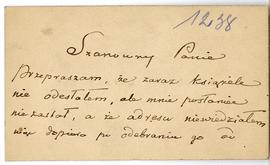 1238
Szanowny Panie
Przepraszam, że zaraz książek
nie odesłałem, ale mnie posłaniec
nie zastał, a że adresu niewiedziałem
dopiero po odebraniu go od